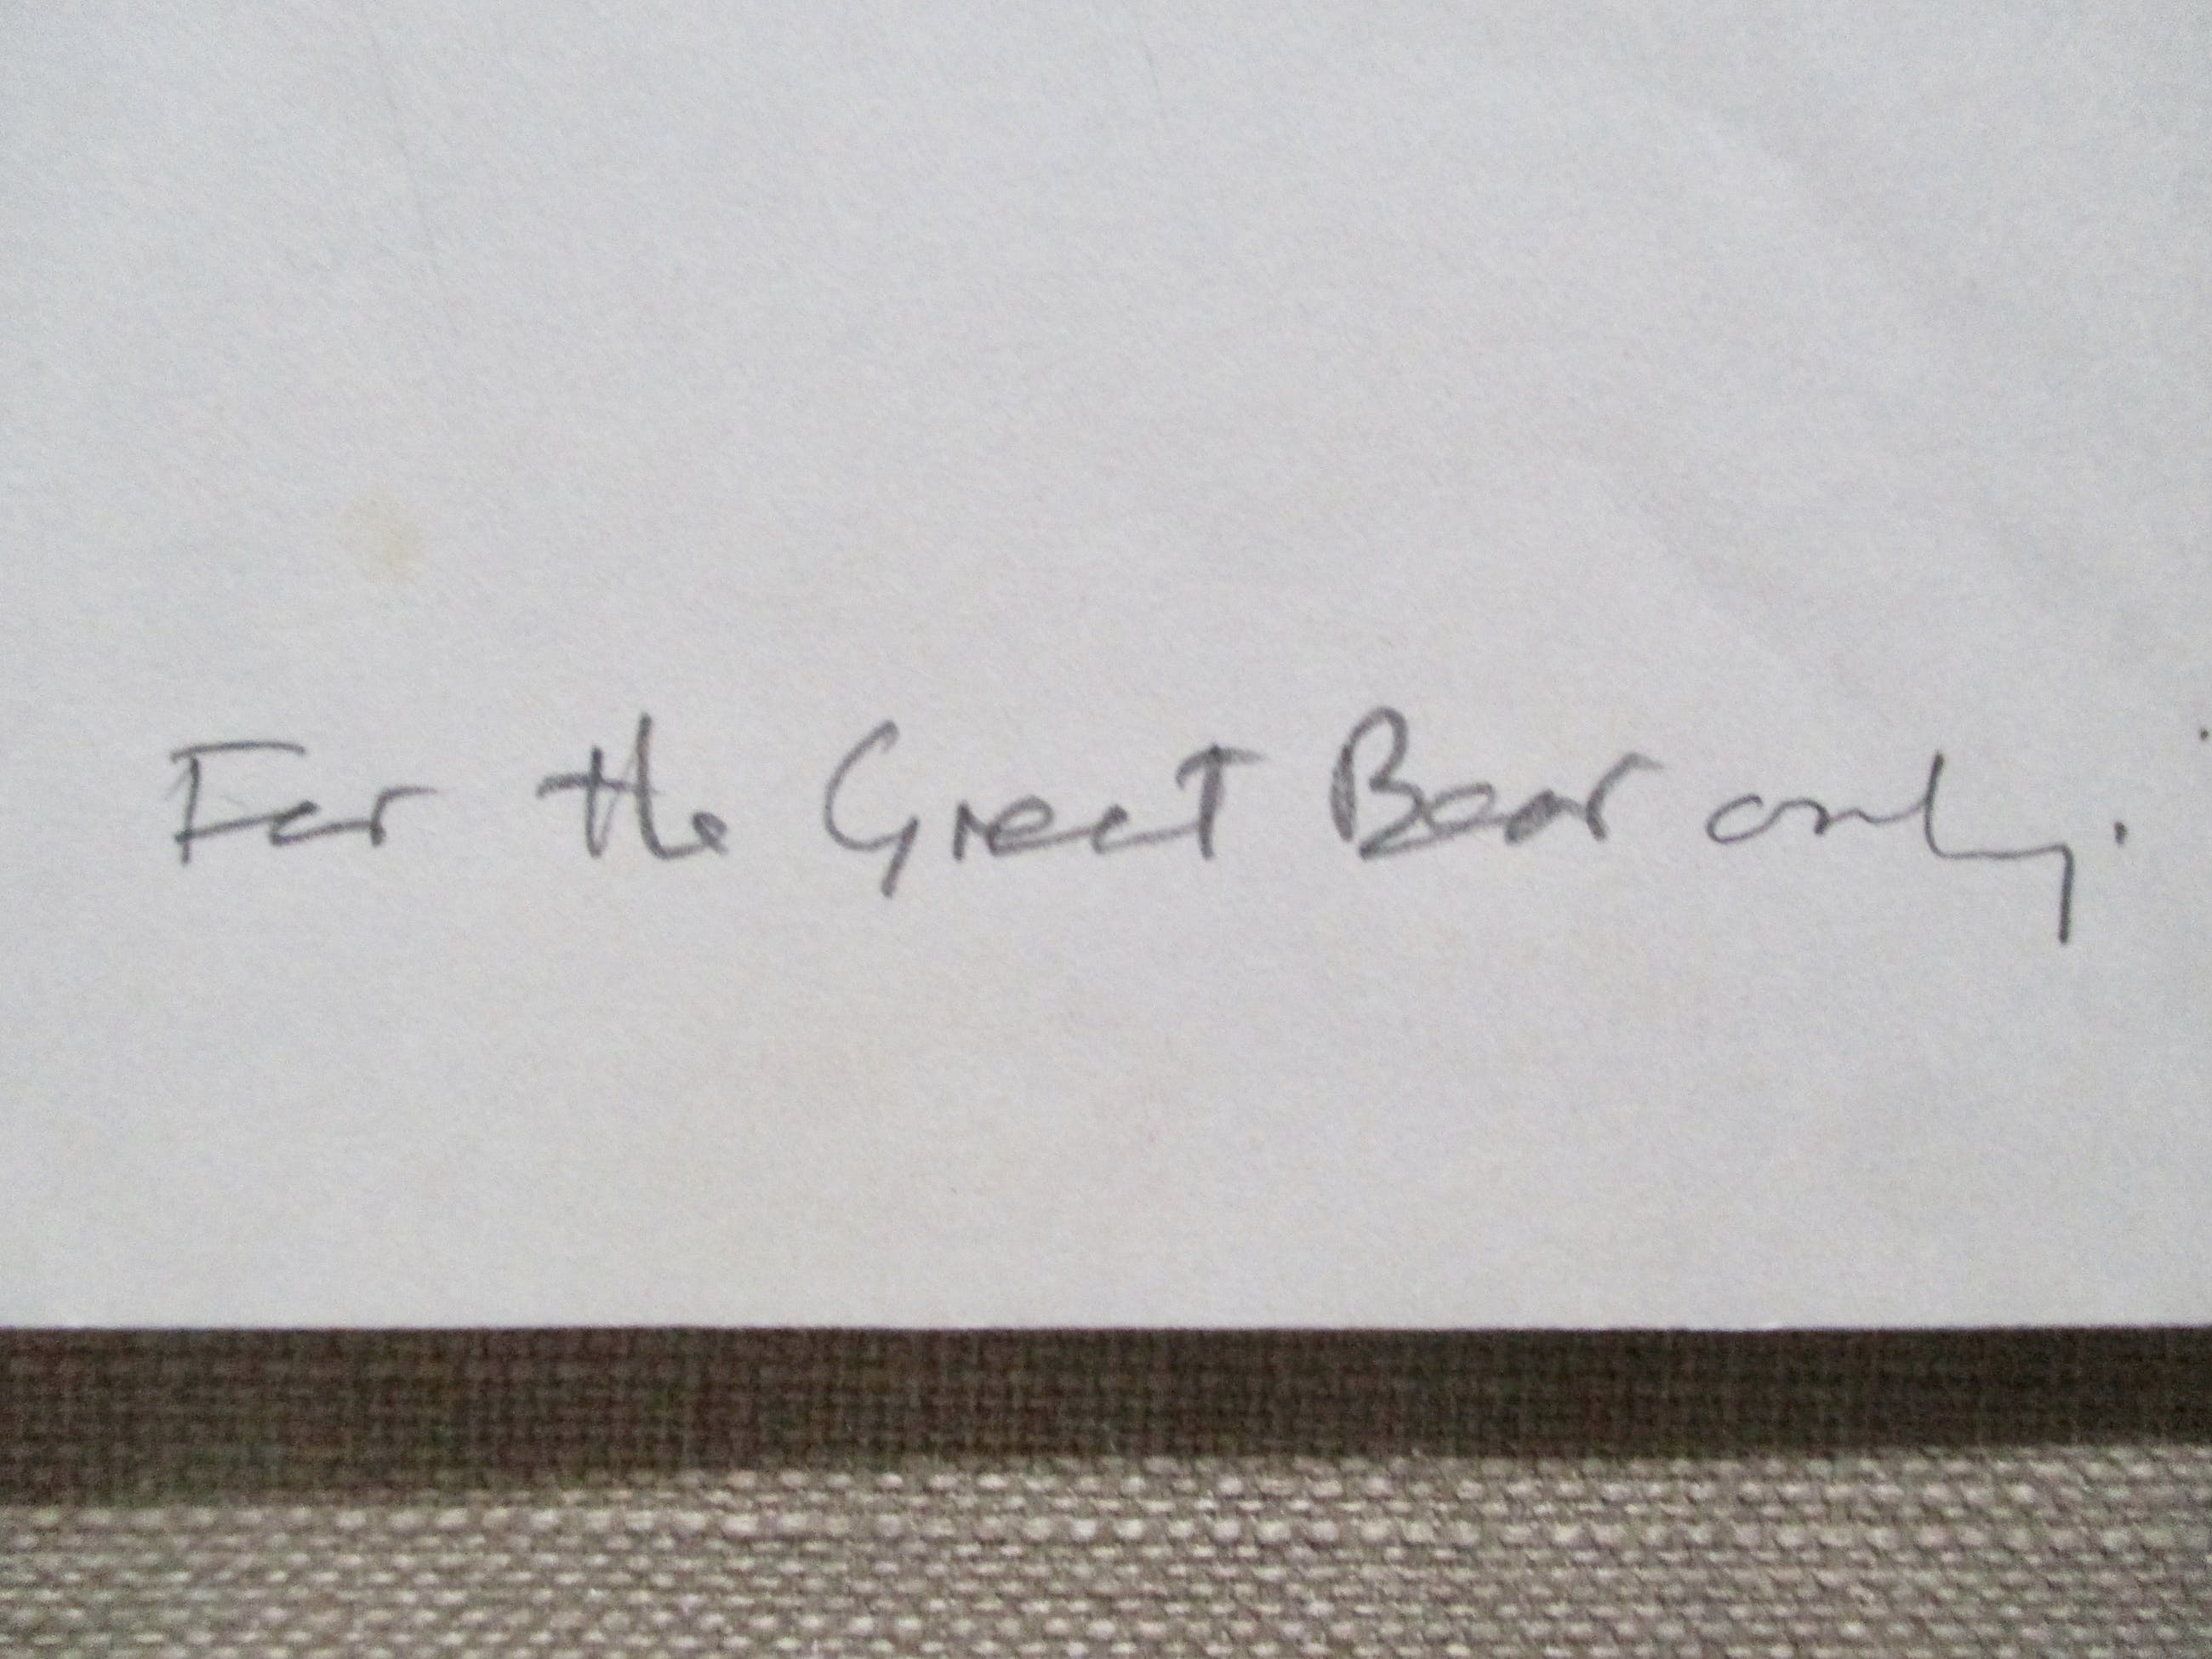 For the Great Bear only.